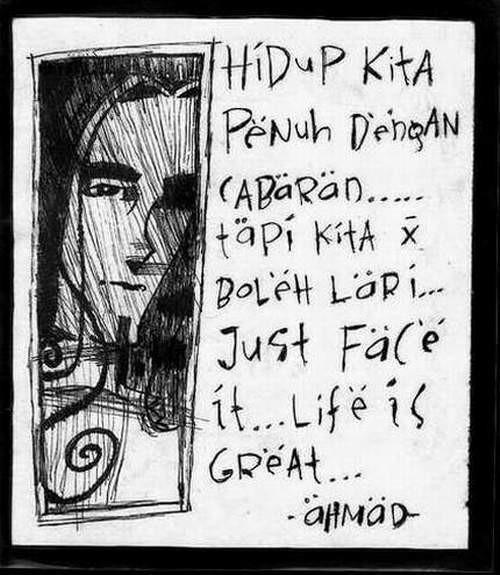 HiDuP KitA
PéNuh DéngAN
CABäRäN.....
täPi KitA x̄
BOLéH LäRi...
Just Fäcé
it...Lifë is
GRëAt...
-ÄHMäD-